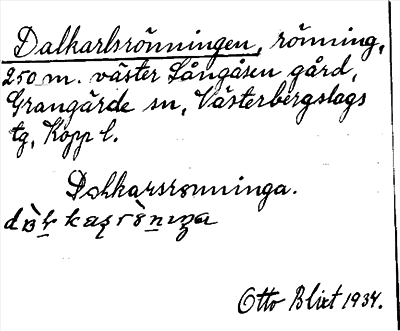 Dalkarlsrönningen, rönning,
250 m. väster Långåsen gård,
Grangärde sn, Västerbergslags
tg, Kopp l.
Dalkarsrønninga.
Otto Blixt 1934.